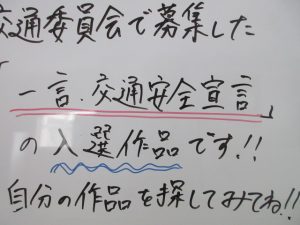 交通委員会で募集した
「
一言、交通安全宣言」
の入選作品です!!
自分の作品を探してみてね!!